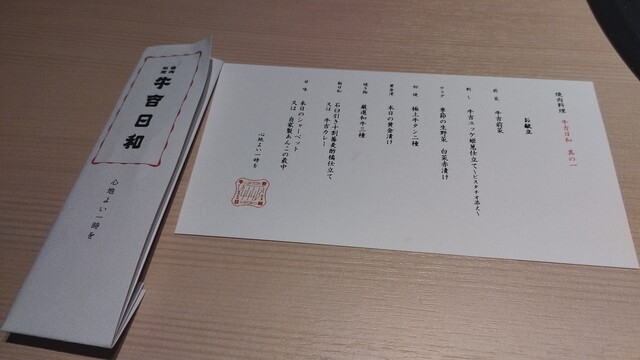 牛吉日和
心地よい一時を
焼肉料理 牛吉日和 其の一
お献立
前菜 牛吉前菜
刺し 牛吉ユッケ姫莧仕立て〜ピスタチオ添え〜
サラダ 季節の生野菜 白菜赤漬け
初焼 極上牛タン二種
黄金漬 本日の黄金漬け
焼き物 厳選和牛三種
石臼引き十割蕎麦酢橘仕立て
又は 牛吉カレー
甘味 本日のシャーベット
又は 自家製あんこの最中
心地よい一時を